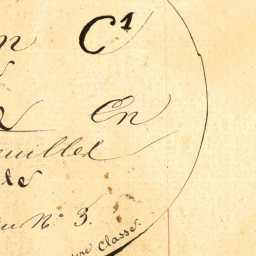 n C¹
En
uillet
de
u N° 3.
ère Classe.